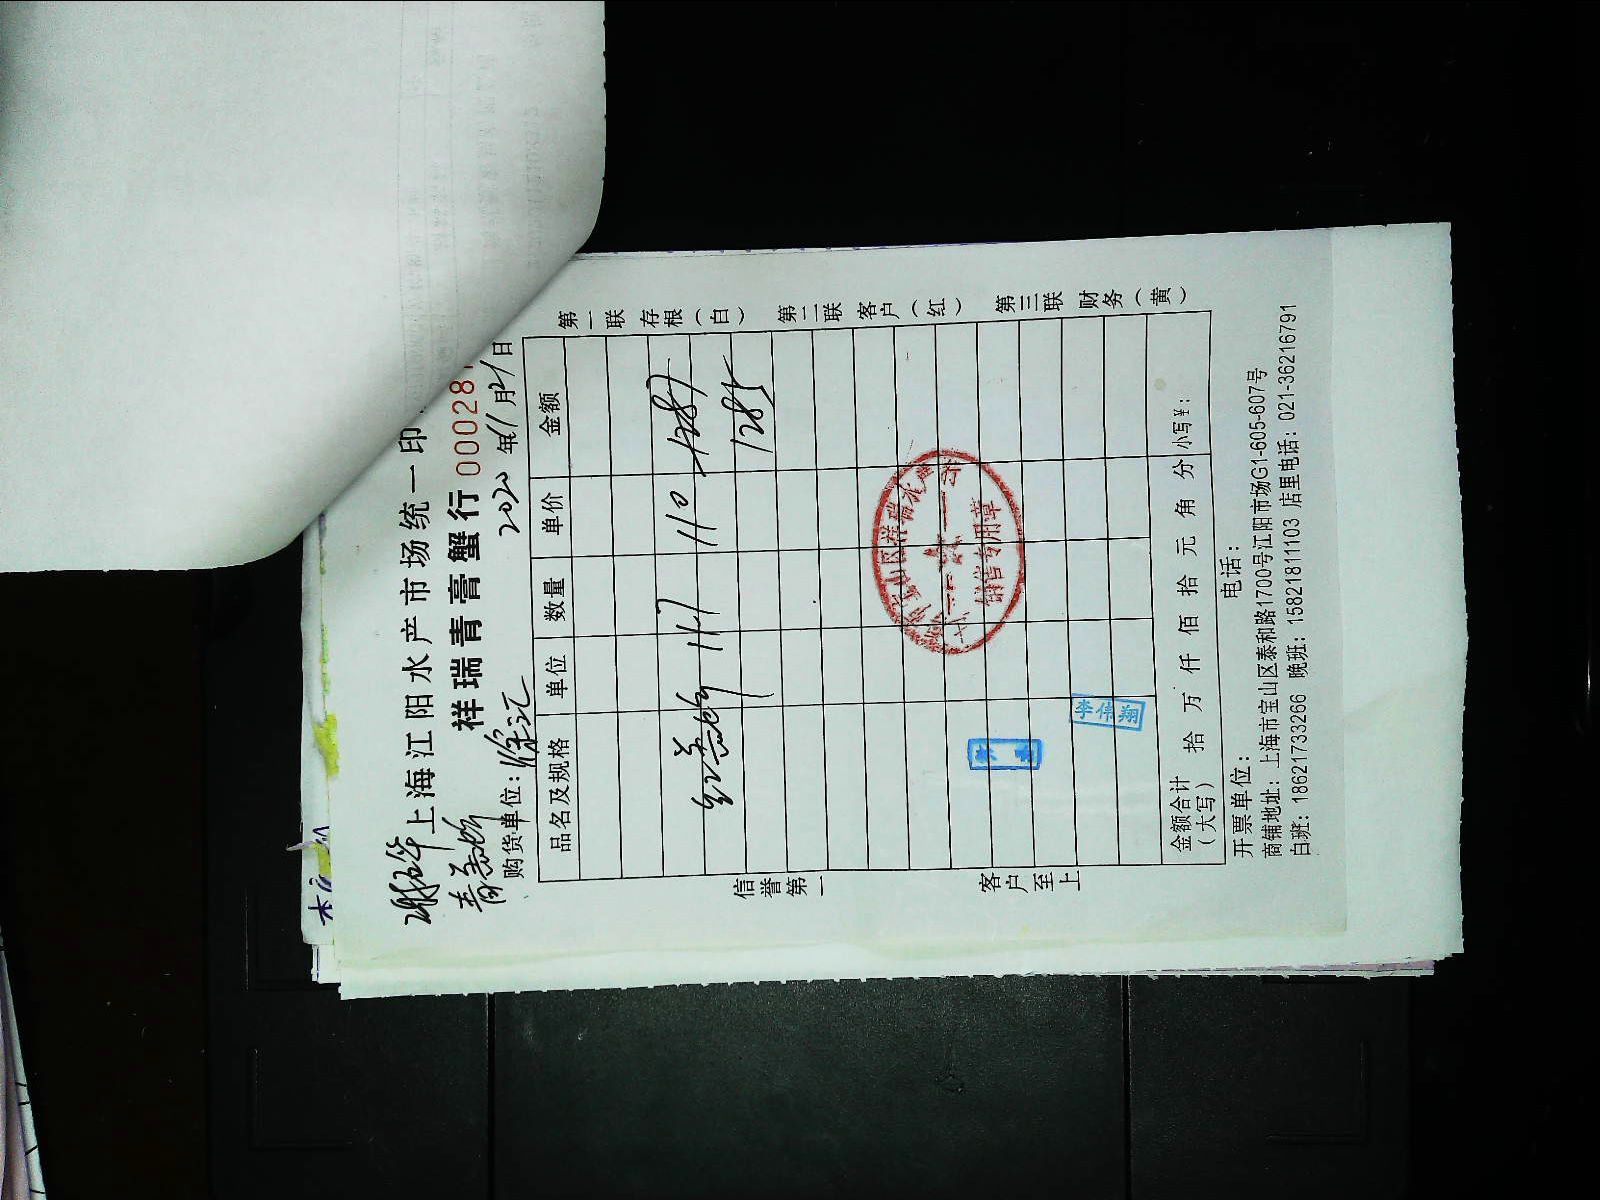 上海江阳水产市场统一印
祥瑞青膏蟹行 000028
青膏蟹
购货单位：徐汇 2020年11月21日
品名及规格 单位 数量 单价 金额
红膏蟹 11.7 110 1287
1285
金额合计（大写） 拾 万 仟 佰 拾 元 角 分 小写¥：
开票单位： 电话：
商铺地址：上海市宝山区泰和路1700号江阳市场G1-605-607号
白班：18621733266 晚班：15821811103 店里电话：021-36216791
第一联 存根（白） 第二联 客户（红） 第三联 财务（黄）
信誉第一 客户至上
宝山区祥瑞
销售专用章
李伟翔